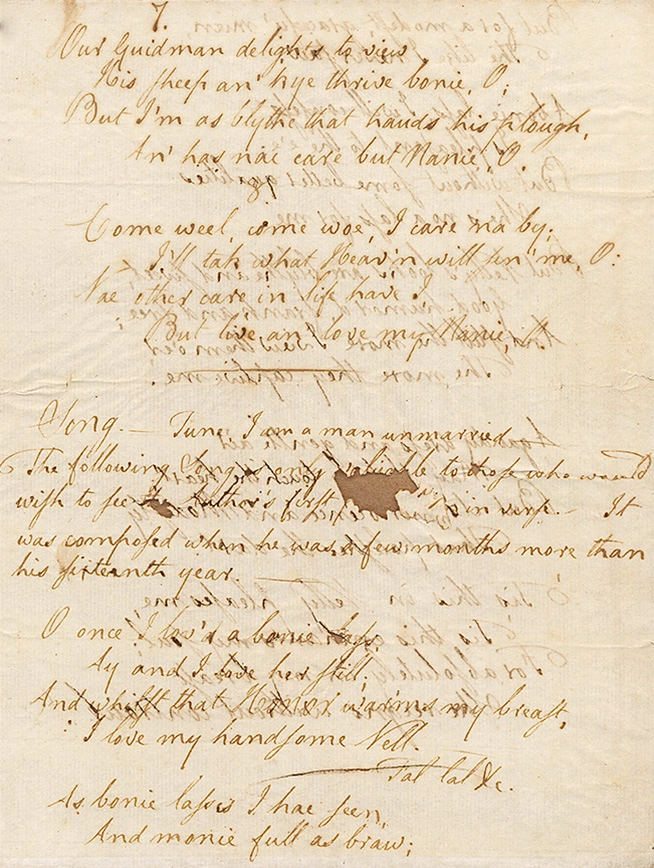 7.
Our Guidman delights to view
His sheep an' kye thrive bonie, O;
But I'm as blythe that hauds his plough,
An' has nae care but Nanie, O.
8
Come weel, come woe, I care na by.
I'll tak what Heav'n will sen' me, O:
Nae other care in life have I
But live an' love my Nanie, O.
Song. — Tune, I am a man unmarried
The following Song is only valuable to those who would
wish to see the Author's first in verse. — It
was composed when he was a few months more than
his sixteenth year. —
O once I lov'd a bonie lass,
Ay and I love her still,
And whilst that Honor warms my breast,
I love my handsome Nell.
Tal lal &c.
As bonie lasses I hae seen,
And monie full as braw;